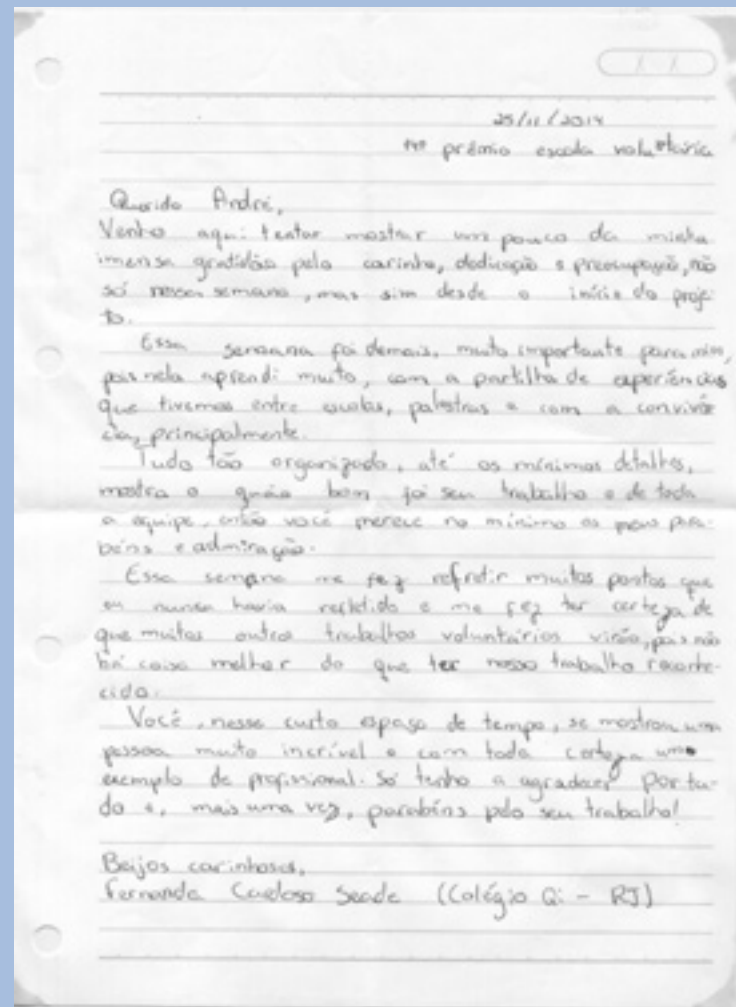 25/11/2014
14º prêmio escola voluntária
Querido André,
Venho aqui tentar mostrar um pouco da minha
imensa gratidão pelo carinho, dedicação e preocupação, não
só nessa semana, mas sim desde o início do proje-
to.
Essa semana foi demais, muito importante para mim,
pois nela aprendi muito, com a partilha de experiências
que tivemos entre escolas, palestras e com a convivên
cia, principalmente.
Tudo tão organizado, até os mínimos detalhes,
mostra o quão bom foi seu trabalho e de toda
a equipe, então você merece no mínimo os meus para-
béns e admiração.
Essa semana me fez refletir muitos pontos que
eu nunca havia refletido e me fez ter certeza de
que muitos outros trabalhos voluntários virão, pois não
há coisa melhor do que ter nosso trabalho reconhe-
cido.
Você, nesse curto espaço de tempo, se mostrou uma
pessoa muito incrível e com toda certeza um
exemplo de profissional. Só tenho a agradecer por tu-
do e, mais uma vez, parabéns pelo seu trabalho!
Beijos carinhosos,
Fernanda Cardoso Seade (Colégio Qi - RJ)